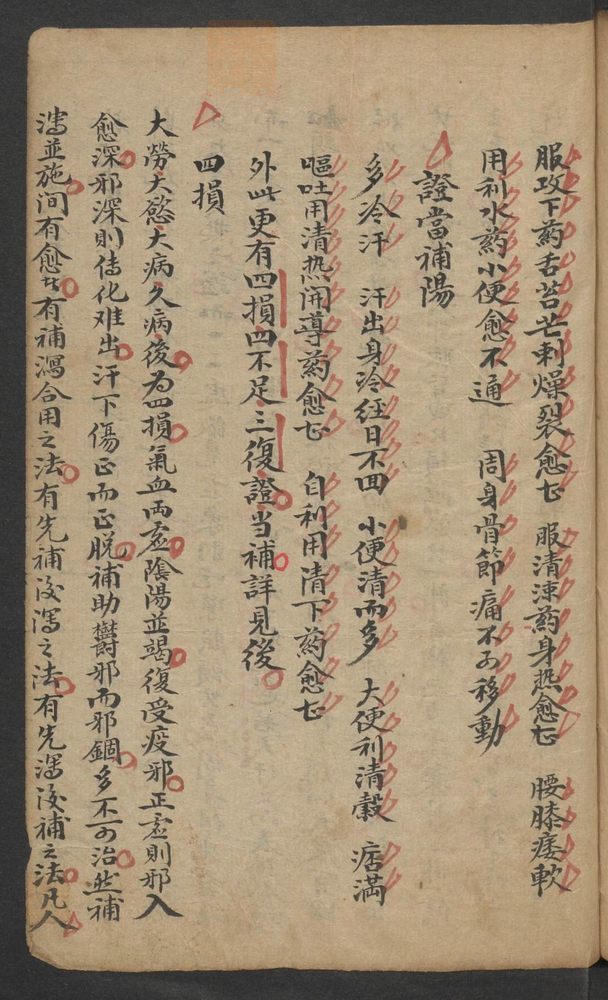 服攻下药舌苔芒刺燥裂愈甚　服清凍药身热愈甚　腰膝痿軟
用利水药小便愈不通　周身骨節痛不可移動
證當補陽
多冷汗　汗出身冷经日不回　小便清而多　大便利清穀　痞满
嘔吐用清热開導药愈甚　自利用清下药愈甚
外此更有四損四不足三復證当補詳見後
四損
大勞大慾大病久病後为四損氣血両虛陰陽並竭復受疫邪正虛則邪入
愈深邪深則傳化难出汗下傷正而正脱補助欝邪而邪錮多不可治然補
瀉並施间有愈者有補瀉合用之法有先補後瀉之法有先瀉後補之法凡人